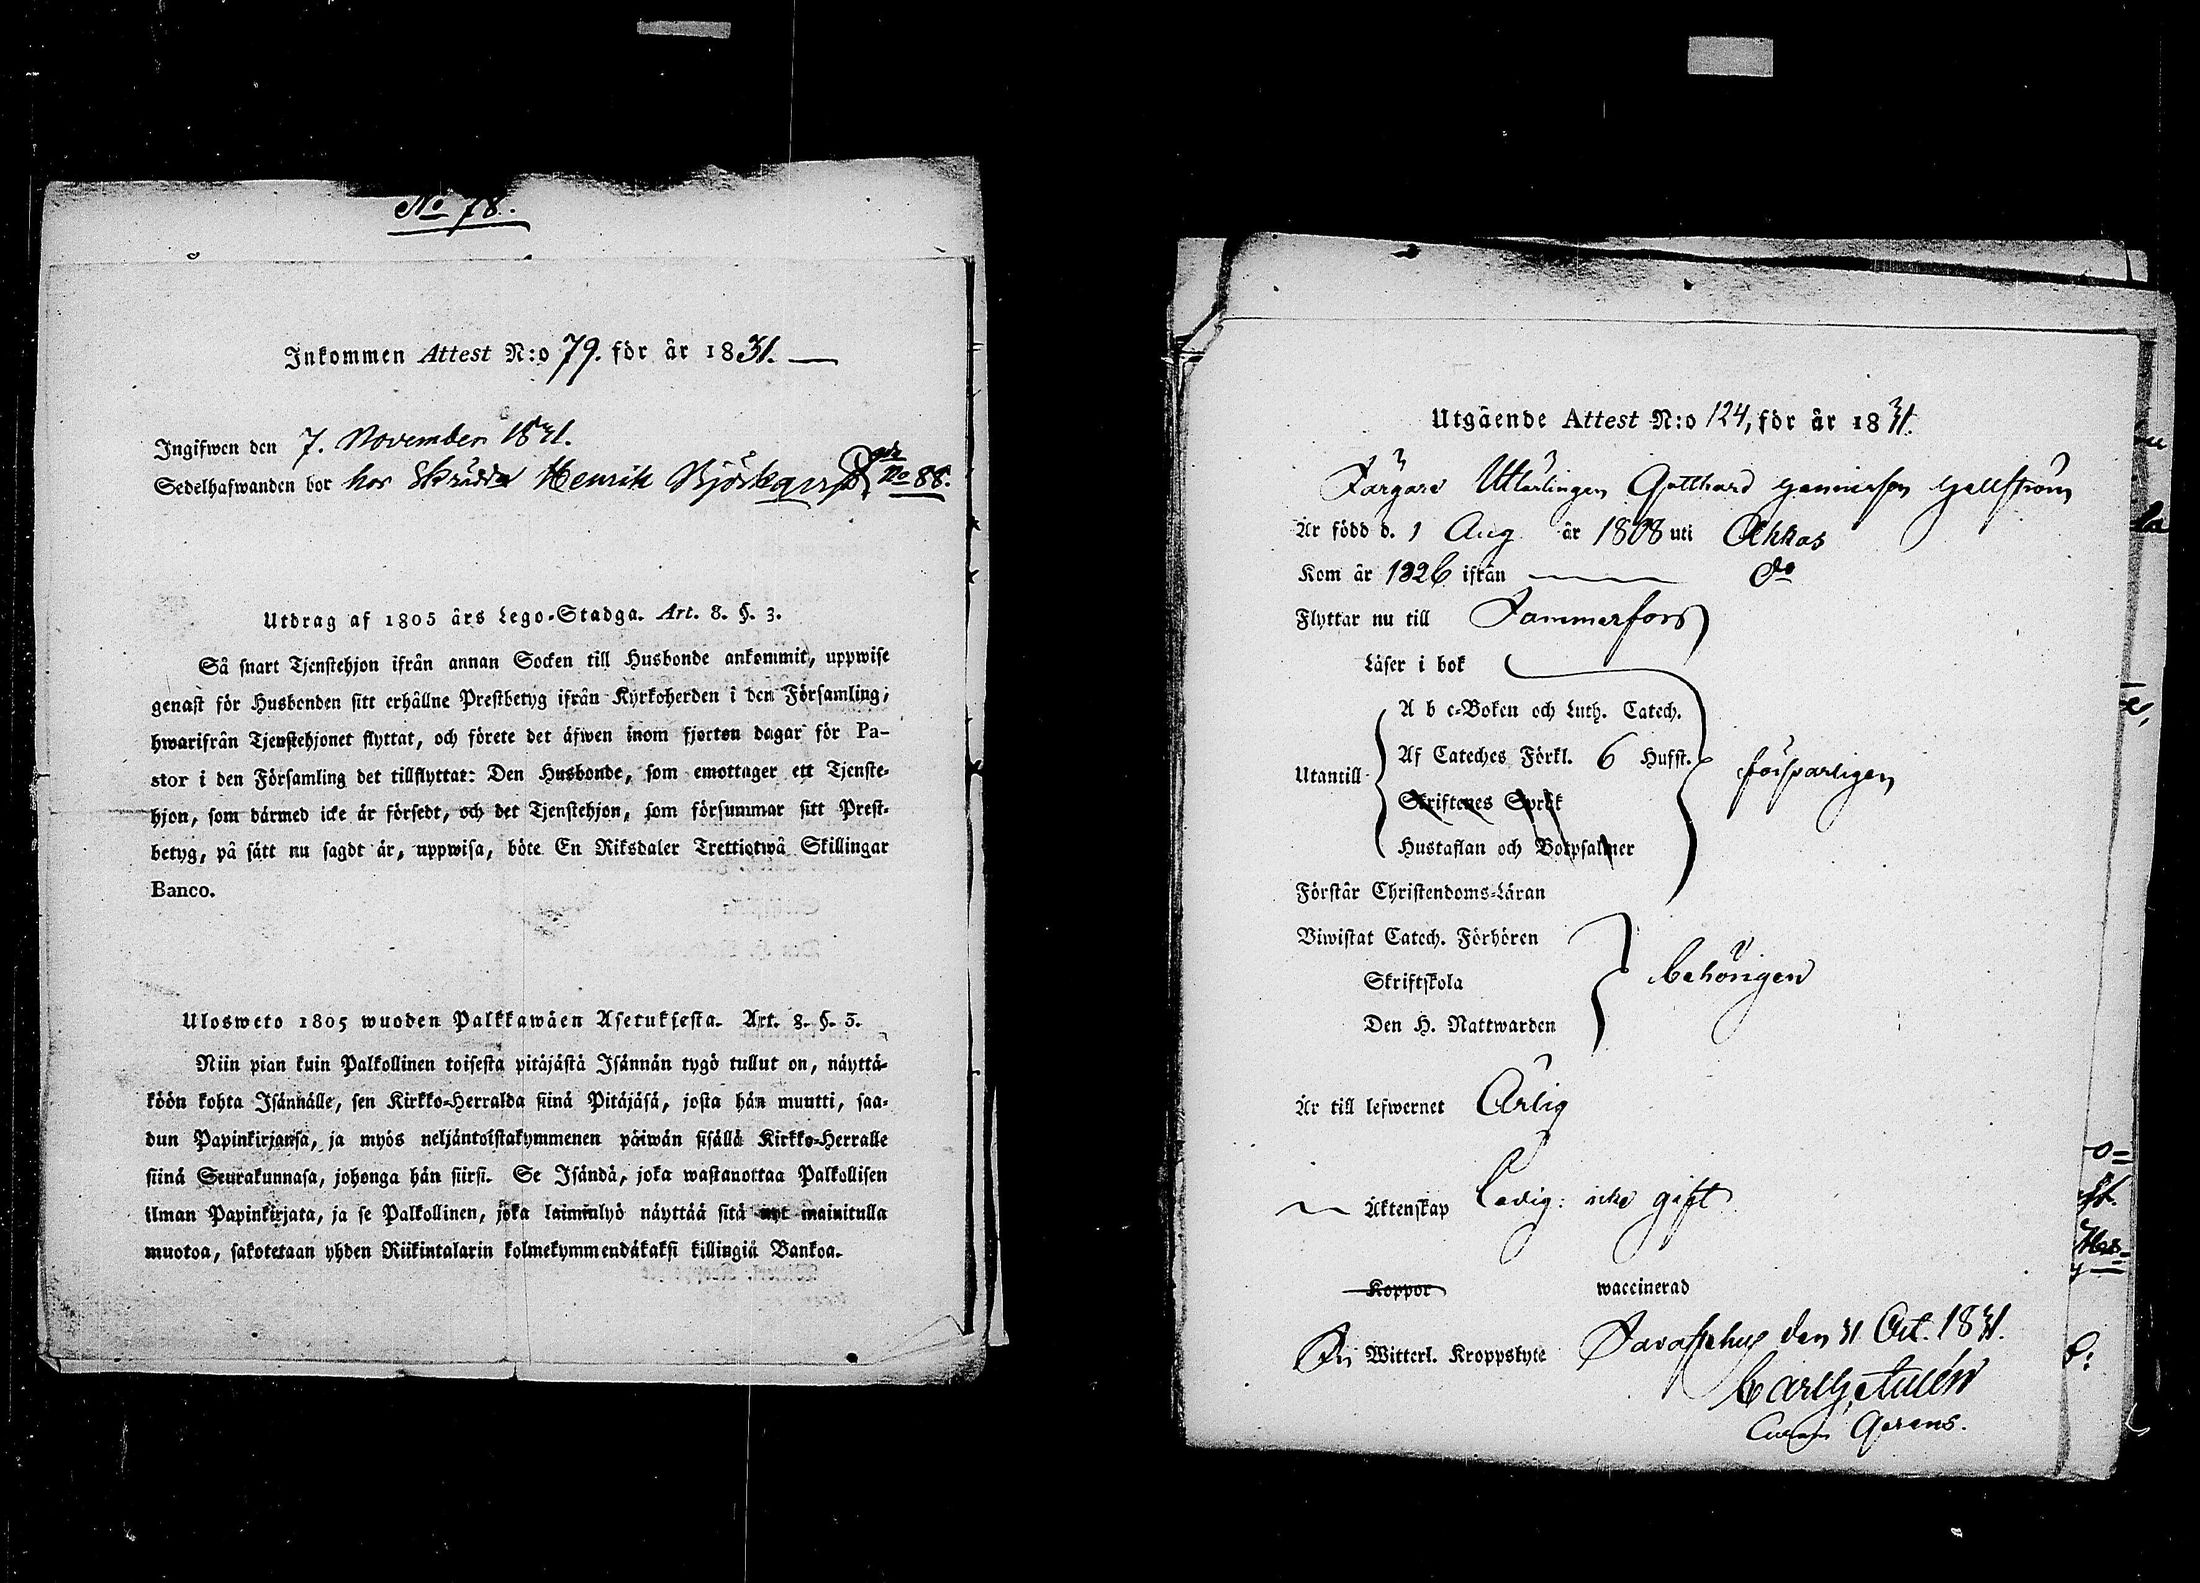 No 78.
Inkommen Attest N:o 79. för år 1831.
Ingifwen den 7. November 1831.
Sedelhafwanden bor hos Skräddar Henrik Björkqvist
No 88.
Utdrag af 1805 års Lego-Stadga. Art. 8. §. 3.
Så snart Tjenstehjon ifrån annan Socken till Husbonde ankommit, uppwise
genast för Husbonden sitt erhållne Prestbetyg ifrån Kyrkoherden i den Församling,
hwarifrån Tjenstehjonet flyttat, och förete det äfwen inom fjorton dagar för Pa-
stor i den Församling det tillflyttat: Den Husbonde, som emottager ett Tjenste-
hjon, som därmed icke är försedt, och det Tjenstehjon, som försummar sitt Prest-
betyg, på sätt nu sagdt är, uppwisa, böte En Riksdaler Trettiotwå Skillingar
Banco.
Ulosweto 1805 wuoden Palkkawäen Asetuksesta. Art. 8. §. 3.
Niin pian kuin Palkollinen toisesta pitäjästä Isännän tygö tullut on, näyttä-
köön kohta Isännälle, sen Kirkko-Herralda siinä Pitäjäsä, josta hän muutti, saa-
dun Papinkirjansa, ja myös neljäntoistakymmenen päiwän sisällä Kirkko-Herralle
siinä Seurakunnasa, johonga hän siirsi. Se Isändä, joka wastanottaa Palkollisen
ilman Papinkirjata, ja se Palkollinen, joka laiminlyö näyttää sitä nyt mainitulla
muotoa, sakotetaan yhden Riikintalarin kolmekymmendäkaksi killingiä Bankoa.
Utgående Attest N:o 124, för år 1831.
Färgare Utlärlingen Gotthard Hellström
Är född d. 1 Aug år 1808 uti Akkas
Kom år 1826 ifrån do
Flyttar nu till Tammerfors
Läser i bok
A b c-Boken och Luth. Catech.
Af Cateches Förkl. 6 Hufst.
Utantill försvarligen
Skriftenes Språk
Hustaflan och Botpsalmer
Förstår Christendoms-Läran
Biwistat Catech. Förhören
Skriftskola behörigen
Den H. Nattwarden
Är till lefwernet Ärlig
Äktenskap Ledig: icke gift
Koppor waccinerad
Fri Witterl. Kroppslyte Tavastehus den 31 Oct. 1831.
Carl G. Aulén
Curam Gerens.